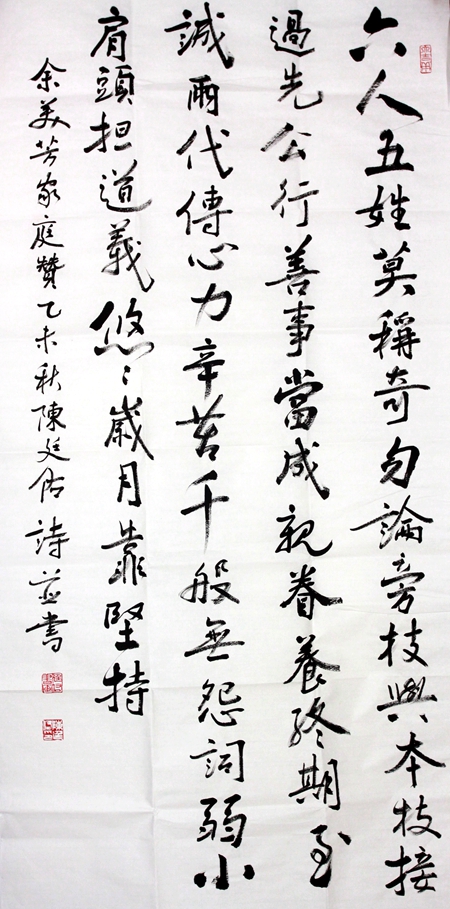 六人五姓莫稱奇勿論旁枝與本枝接
過先公行善事當成親眷養終期至
誠兩代傳心力辛苦千般無怨詞弱小
肩頭担道義悠〻歲月靠堅持
余美芳家庭贊乙未秋陳廷佑詩並書